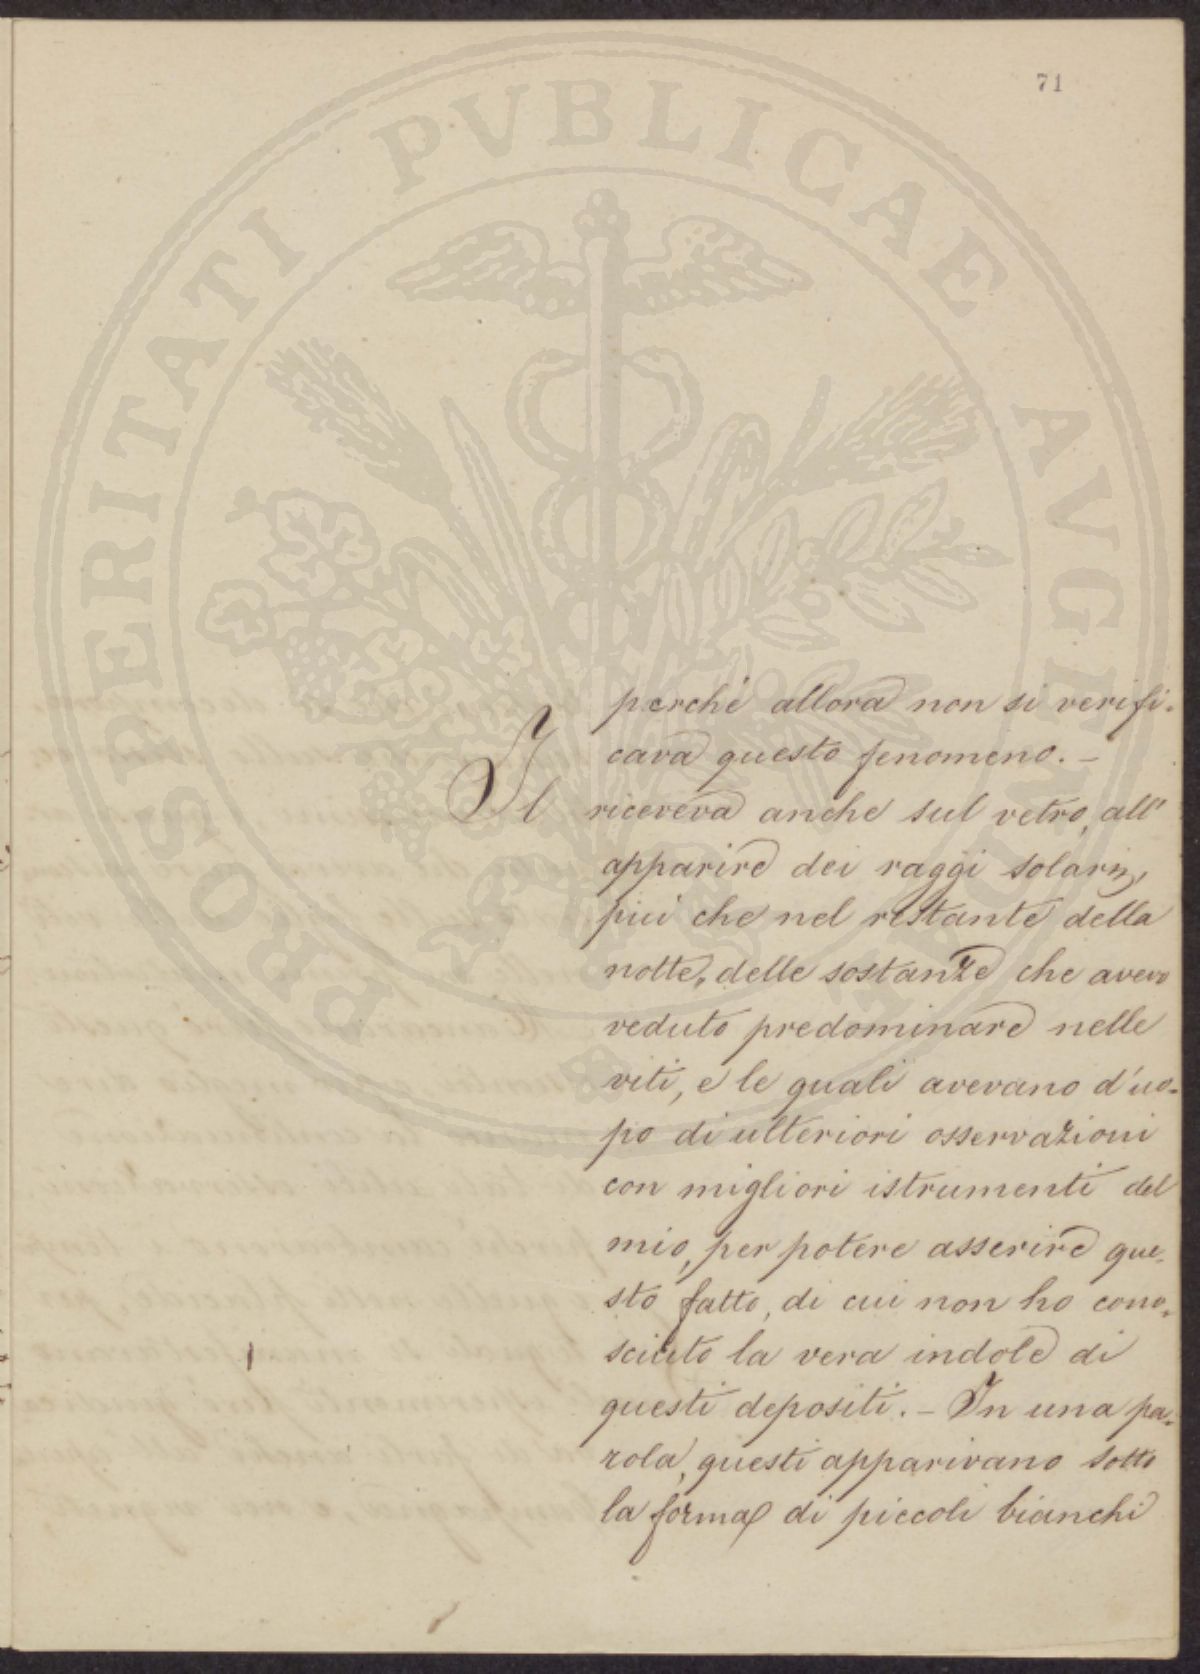 71
perché allora non si verifi-
cava questo fenomeno. -
Il riceveva anche sul vetro, all'
apparire dei raggi solari,
più che nel restante della
notte, delle sostanze che avevo
veduto predominare nelle
viti, e le quali avevano d'uo-
po di ulteriori osservazioni
con migliori istrumenti del
mio, per potere asserire que-
sto fatto, di cui non ho cono-
sciuto la vera indole di
questi depositi. - In una pa-
rola, questi apparivano sotto
la forma di piccoli bianchi
PROSPERITATI PVBLICAE AVGENDAE